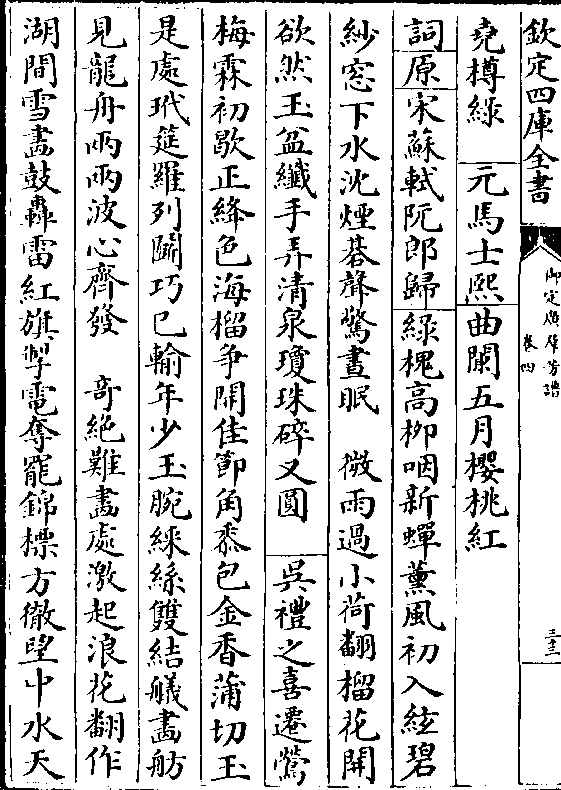 欽定四庫全書
御定廣羣芳譜
卷四
堯樽綠 元馬士熙曲闌五月櫻桃紅
詞原宋蘇軾阮郎歸綠槐高柳咽新蟬薰風初入絃碧
紗窓下水沈煙碁聲驚晝眠 微雨過小荷翻榴花開
欲然玉盆纖手弄清泉瓊珠碎又圓 吳禮之喜遷鶯
梅霖初歇正絳色海榴爭開佳節角黍包金香蒲切玉
是處玳筵羅列鬬巧已輸年少玉腕綵絲雙結艤畫舫
見龍舟兩兩波心齊發 奇絶難畫處激起浪花翻作
湖間雪畫鼓轟雷紅旗掣電奪罷錦標方徹望中水天